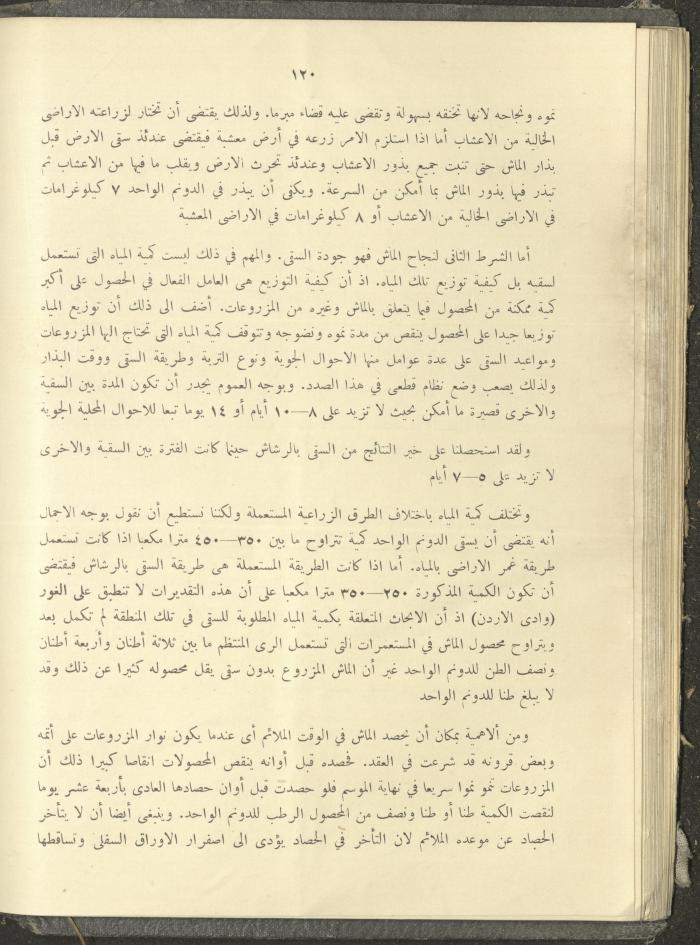 ١٢٠
نموه ونجاحه لانها تخنقه بسهولة وتقضى عليه قضاء مبرما. ولذلك يقتضى أن تختار لزراعته الاراضى
الخالية من الاعشاب أما اذا استلزم الامر زرعه فى أرض معشبة فيقتضى عندئذ سقى الارض قبل
بذار الماش حتى تنبت جميع بذور الاعشاب وعندئذ تحرث الارض ويقلب ما فيها من الاعشاب ثم
تبذر فيها بذور الماش بما أمكن من السرعة. ويكفى أن يبذر فى الدونم الواحد ٧ كيلوغرامات
فى الاراضى الخالية من الاعشاب أو ٨ كيلوغرامات فى الاراضى المعشبة
أما الشرط الثانى لنجاح الماش فهو جودة السقى. والمهم فى ذلك ليست كمية المياه التى تستعمل
لسقيه بل كيفية توزيع تلك المياه. اذ أن كيفية التوزيع هى العامل الفعال فى الحصول على أكبر
كمية ممكنة من المحصول فيما يتعلق بالماش وغيره من المزروعات. أضف الى ذلك أن توزيع المياه
توزيعا جيدا على المحصول ينقص من مدة نموه ونضوجه وتتوقف كمية المياه التى تحتاج اليها المزروعات
ومواعيد السقى على عدة عوامل منها الاحوال الجوية ونوع التربة وطريقة السقى ووقت البذار
ولذلك يصعب وضع نظام قطعى فى هذا الصدد. وبوجه العموم يجدر أن تكون المدة بين السقية
والاخرى قصيرة ما أمكن بحيث لا تزيد على ٨—١٠ أيام أو ١٤ يوما تبعا للاحوال المحلية الجوية
ولقد استحصلنا على خير النتائج من السقى بالرشاش حينما كانت الفترة بين السقية والاخرى
لا تزيد على ٥—٧ أيام
وتختلف كمية المياه باختلاف الطرق الزراعية المستعملة ولكننا نستطيع أن نقول بوجه الاجمال
أنه يقتضى أن يسقى الدونم الواحد كمية تتراوح ما بين ٣٥٠—٤٥٠ مترا مكعبا اذا كانت تستعمل
طريقة غمر الاراضى بالمياه. أما اذا كانت الطريقة المستعملة هى طريقة السقى بالرشاش فيقتضى
أن تكون الكمية المذكورة ٢٥٠—٣٥٠ مترا مكعبا على أن هذه التقديرات لا تنطبق على الغور
(وادى الاردن) اذ أن الابحاث المتعلقة بكمية المياه المطلوبة للسقى فى تلك المنطقة لم تكمل بعد
ويتراوح محصول الماش فى المستعمرات التى تستعمل الرى المنتظم ما بين ثلاثة أطنان وأربعة أطنان
ونصف الطن للدونم الواحد غير أن الماش المزروع بدون سقى يقل محصوله كثيرا عن ذلك وقد
لا يبلغ طنا للدونم الواحد
ومن ألاهمية بمكان أن يحصد الماش فى الوقت الملائم أى عندما يكون نوار المزروعات على أتمه
وبعض قرونه قد شرعت فى العقد. فحصده قبل أوانه ينقص المحصولات انقاصا كبيرا ذلك أن
المزروعات تنمو نموا سريعا فى نهاية الموسم فلو حصدت قبل أوان حصادها العادى بأربعة عشر يوما
لنقصت الكمية طنا أو طنا ونصف من المحصول الرطب للدونم الواحد. وينبغى أيضا أن لا يتأخر
الحصاد عن موعده الملائم لان التأخر فى الحصاد يؤدى الى اصفرار الاوراق السفلى وتساقطها